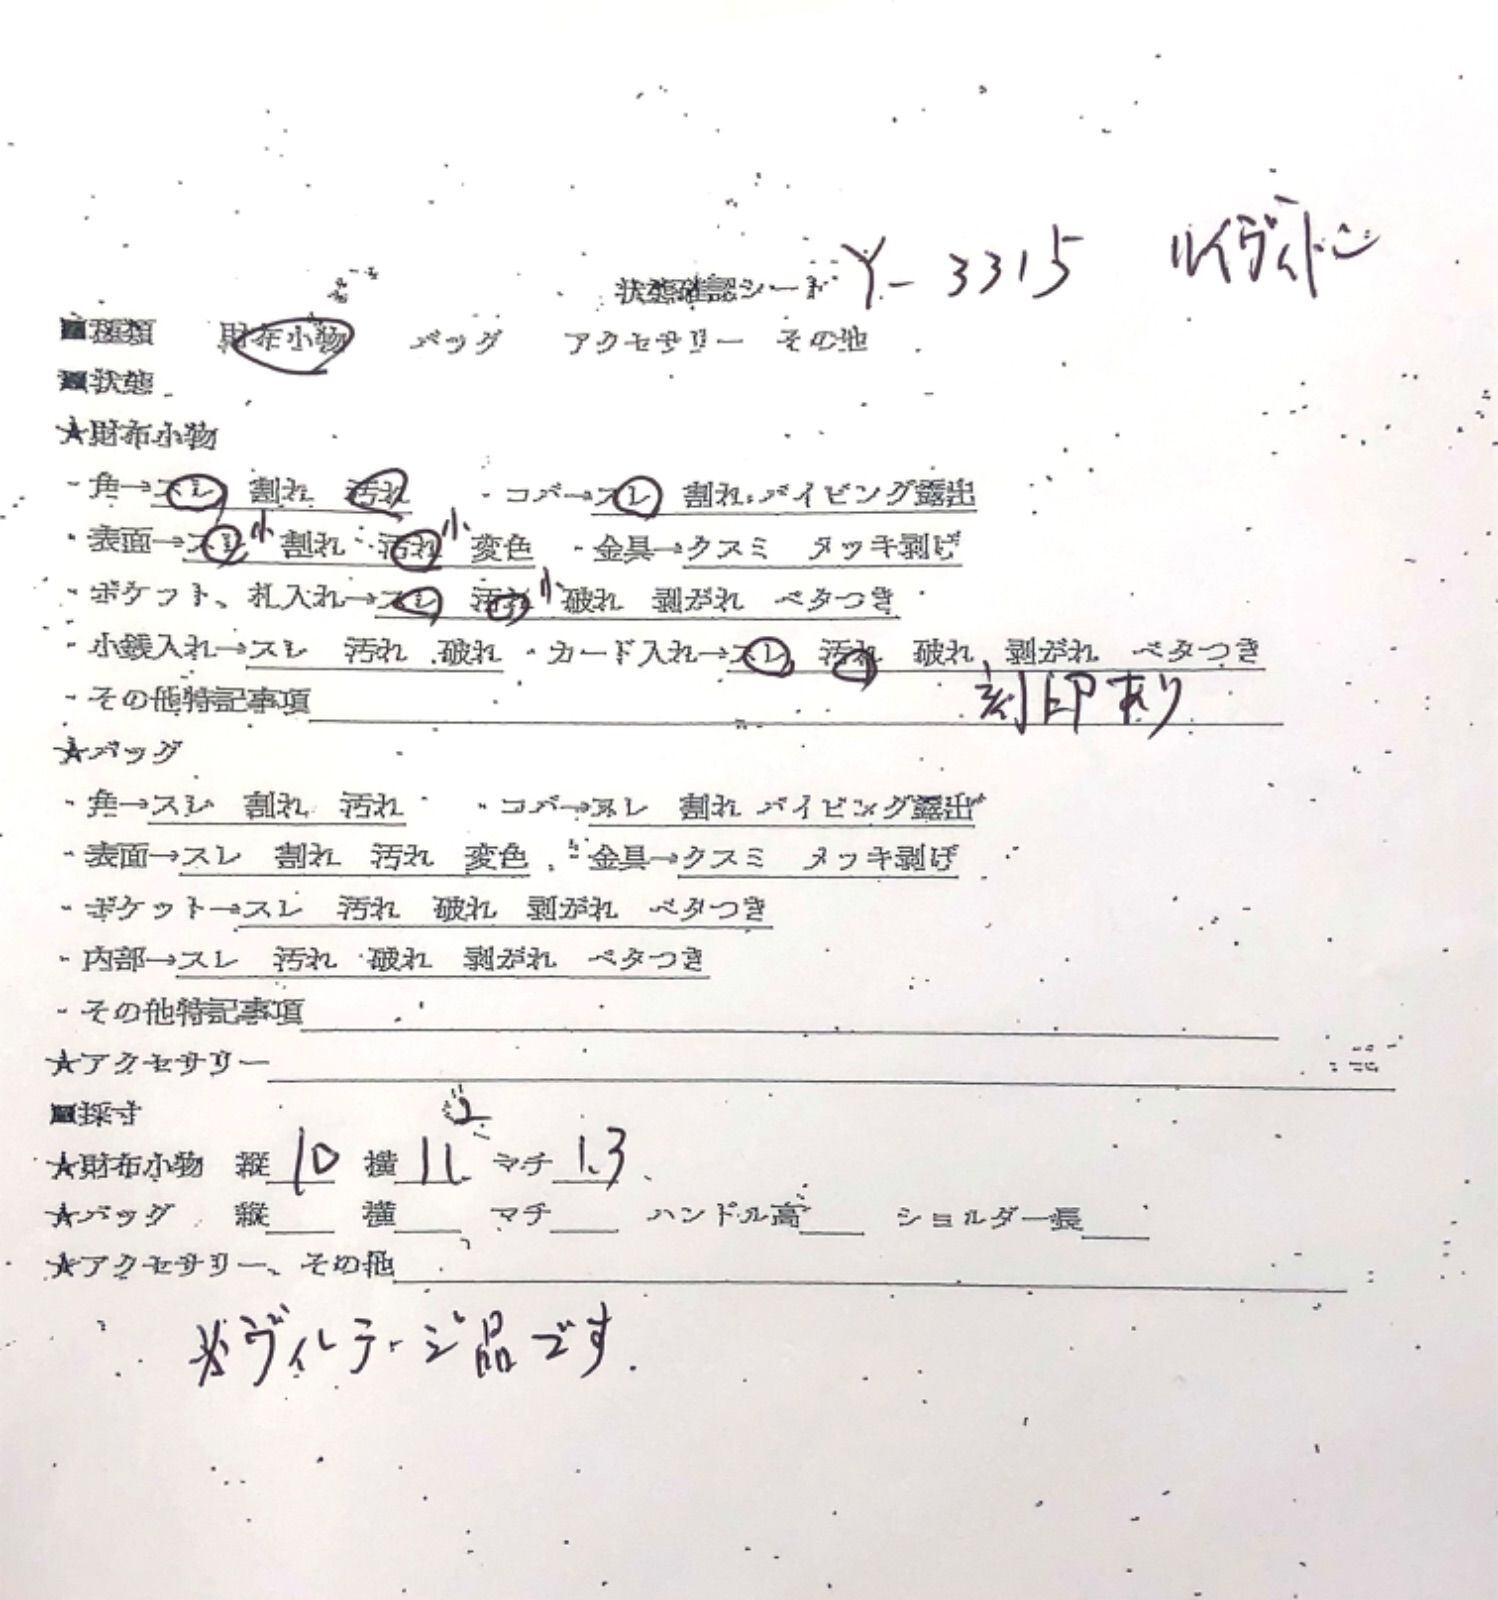 状態確認シート Y-3315 ルイヴィトン
■種類 財布小物 バッグ アクセサリー その他
■状態
★財布小物
・角→スレ 割れ 汚れ ・コバ→スレ 割れ パイピング露出
・表面→スレ 小 割れ 汚れ 小 変色 ・金具→クスミ メッキ剥げ
・ポケット、札入れ→スレ 汚れ 小 破れ 剥がれ ベタつき
・小銭入れ→スレ 汚れ 破れ ・カード入れ→スレ 汚れ 破れ 剥がれ ベタつき
・その他特記事項 刻印あり
★バッグ
・角→スレ 割れ 汚れ ・コバ→スレ 割れ パイピング露出
・表面→スレ 割れ 汚れ 変色 ・金具→クスミ メッキ剥げ
・ポケット→スレ 汚れ 破れ 剥がれ ベタつき
・内部→スレ 汚れ 破れ 剥がれ ベタつき
・その他特記事項
★アクセサリー
■採寸
★財布小物 縦 10 横 マチ 1.3
★バッグ 縦 横 マチ ハンドル高 ショルダー長
★アクセサリー、その他
※ヴィンテージ品です.